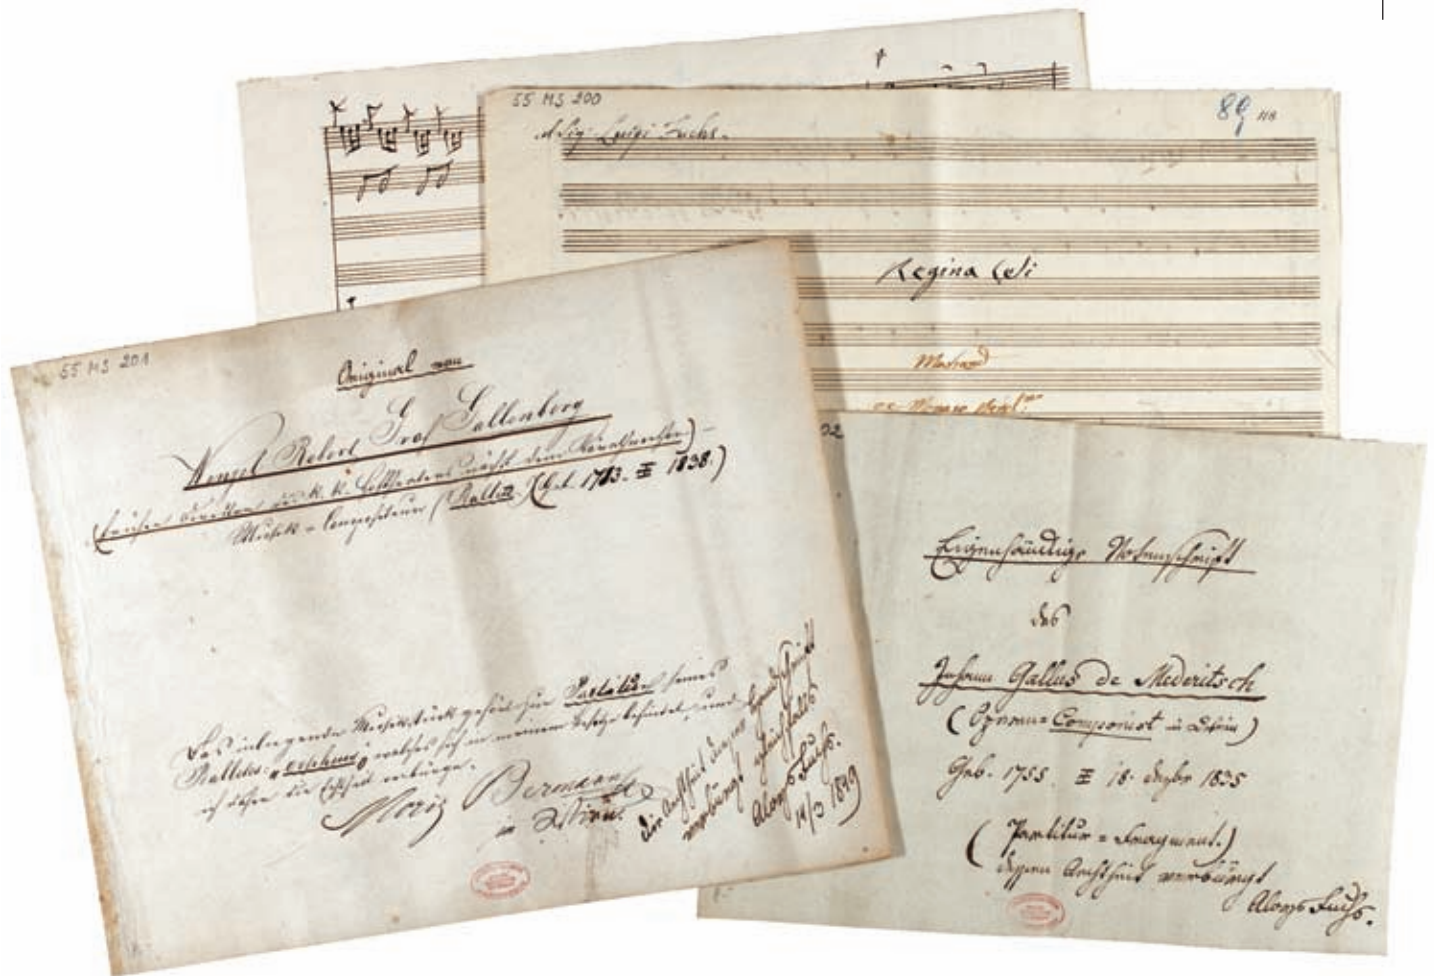 55 MS 200
Sig. Luigi Fuchs.
89
118
Regina Celi
55 MS 201
Original von
Wenzel Robert Graf Gallenberg
(früher Direktor des k. k. Hoftheaters nächst dem Kärntnerthor)
Musik-Compositeur (Ballette.) (Geb. 1783. 1838.)
Das inliegende Musikstück gehört zur Partitur seines
Balletes „Orpheus“ welches sich in meinem Besitze befindet, und
ich daher die Echtheit verbürge.
Moriz Bermann
in Wien.
die Aechtheit dieser Handschrift
verbürgt gleichfalls
Aloys Fuchs.
14/3 1849
02
Eigenhändige Notenschrift
des
Johann Gallus de Mederitsch
(Opern-Componist in Wien)
Geb. 1755. 18. Dezbr 1835
(Partitur-Fragment.)
dessen Aechtheit verbürgt
Aloys Fuchs.